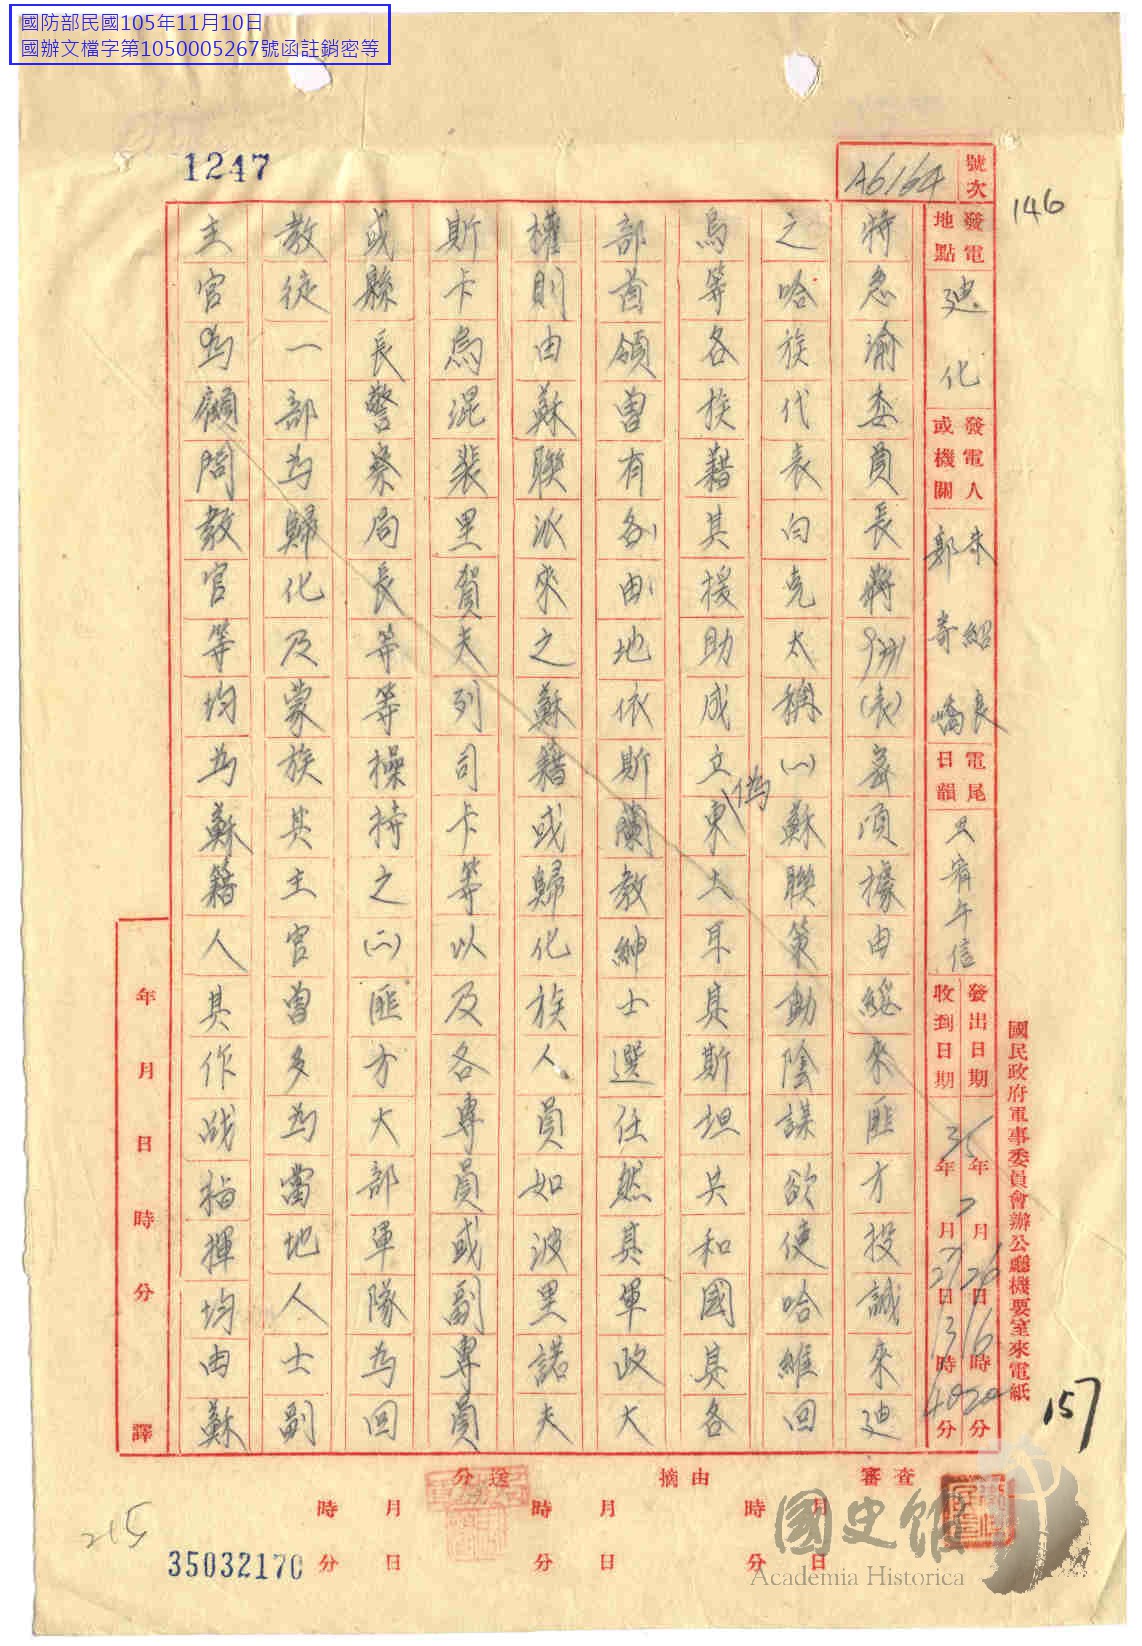 國防部民國105年11月10日
國辦文檔字第1050005267號函註銷密等
1247
號次
A6164
146
發電地點
迪化
發電人或機關
朱紹良
郭寄嶠
電尾日韻
午
發出日期
35年7月26日16時20分
收到日期
年7月27日13時40分
國民政府軍事委員會辦公廳機要室來電紙
157
特急渝委員長蔣(表)密頃據由綏來匪方投誠來迪
之哈族代表白克太稱(一)蘇聯策動陰謀欲使哈維回
烏等各族藉其援助成立偽東土耳其斯坦共和國其各
部首領曾有各由地依斯蘭教紳士選任然其軍政大
權則由蘇聯派來之蘇籍或歸化族人員如波里諾夫
斯卡為混裴里賀夫列司卡等以及各專員或副專員
或縣長警察局長等等操持之(二)匪方大部軍隊為回
教徒一部為歸化及蒙族其主官曾多為當地人士副
主官為顧問教官等均為蘇籍人其作战指揮均由蘇
年月日時分譯
審查
摘由
分送
月日時分
月日時分
月日時分
215
35032170
國史館
Academia Historica